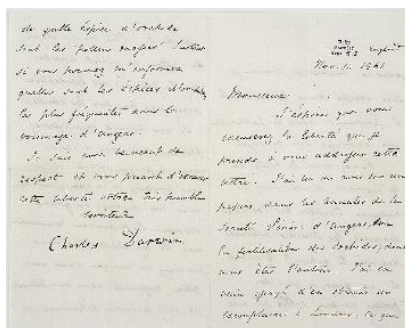 de quelle espèce d'orchide
sont les pollen
si vous pouvez m'informer
quelles sont les espèces
les plus fréquentes dans le
voisinage d'Angers.
Je suis avec beaucoup de
respect et vous priant d'excuser
cette liberté votre très humble
serviteur
Charles Darwin
England
Nov.
Monsieur
J'espère que vous
excuserez la liberté que je
prends à vous addresser cette
lettre. J'ai un
papier dans les annales de la
Société Linn: d'Angers, sur
la fertilisation des Orchides, dont
vous êtes l'auteur. J'ai en
vain essayé d'en obtenir un
exemplaire à Londres, ce que